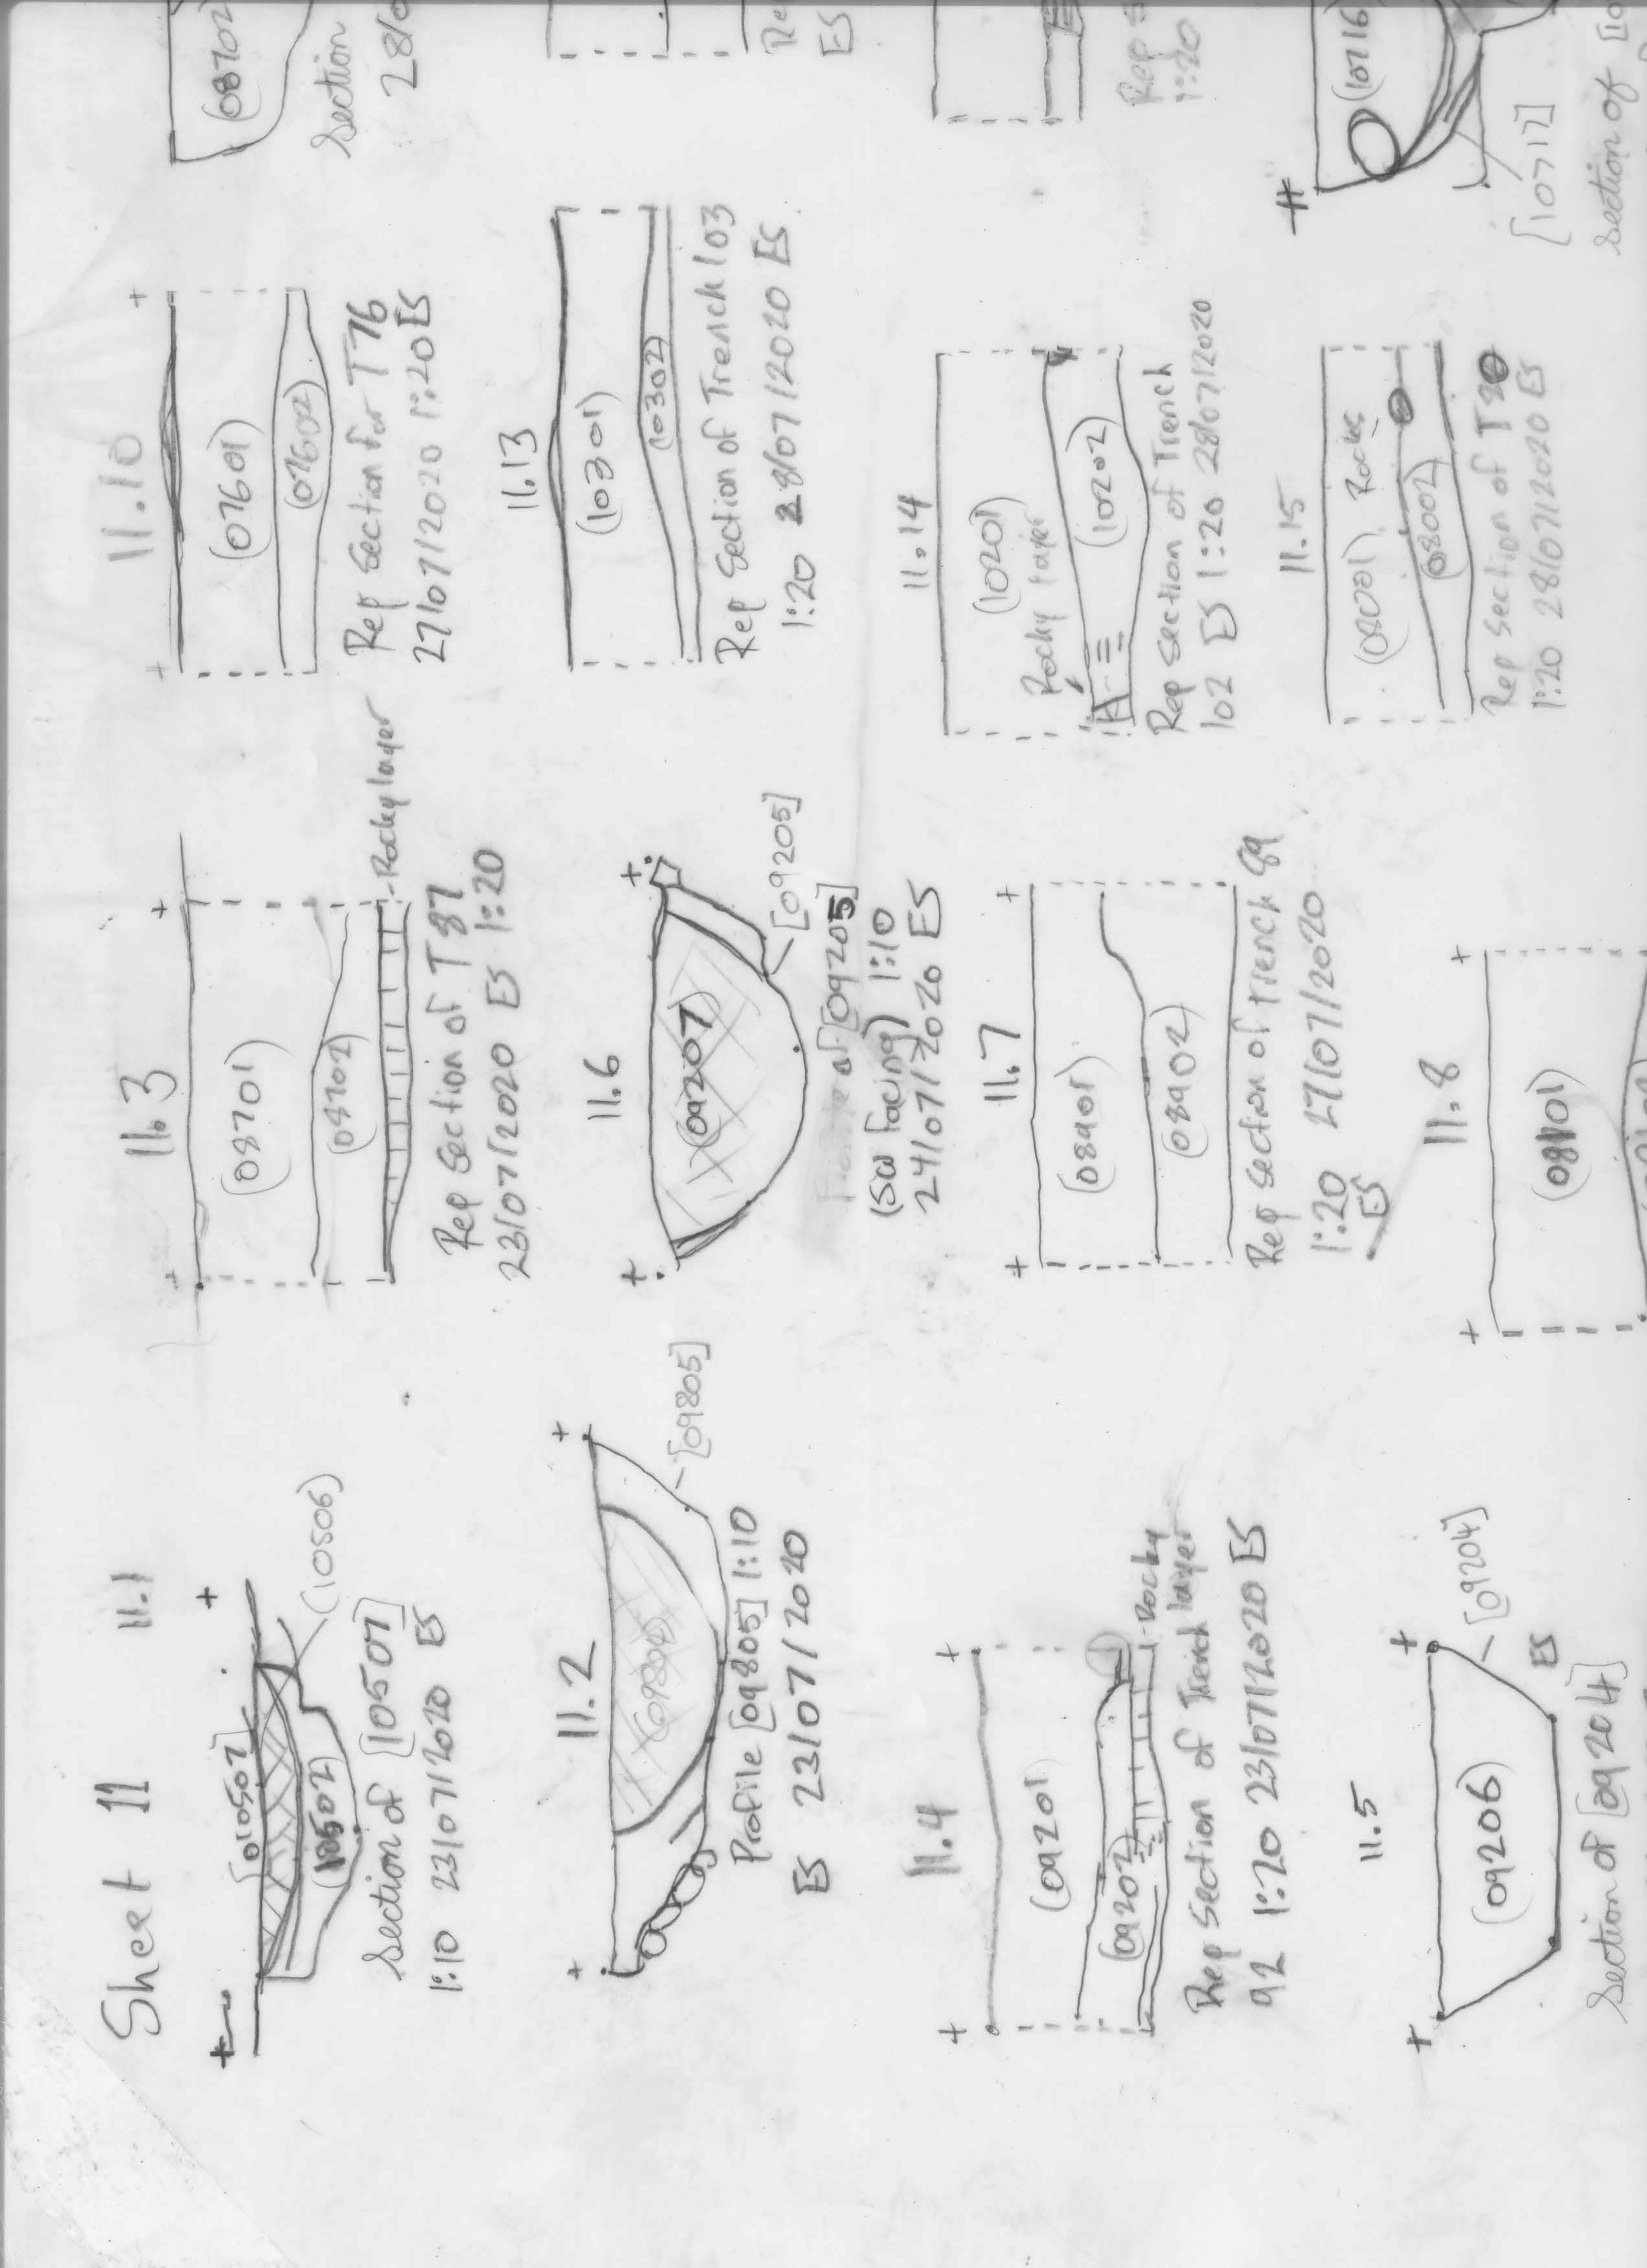 Sheet 11
11.1
[010507]
(10502)
(10506)
Section of [10507]
1:10 23/07/2020 ES
11.2
(09804)
[09805]
Profile [09805] 1:10
ES 23/07/2020
11.4
(09201)
(09202)
Rocky
layer
Rep Section of Trench
92 1:20 23/07/2020 ES
11.5
(09206)
[09204]
ES
Section of [09204]
11.3
(08701)
(08702)
Rocky layer
Rep Section of T 87
23/07/2020 ES 1:20
11.6
(09207)
[09205]
Profile of [09205]
(SW facing) 1:10
24/07/2020 ES
11.7
(08901)
(08902)
Rep Section of Trench 89
1:20 27/07/2020
ES
11.8
(08101)
11.10
(07601)
(07602)
Rep Section for T76
27/07/2020 1:20 ES
11.13
(10301)
(10302)
Rep Section of Trench 103
1:20 28/07/2020 ES
11.14
(10201)
Rocky layer
(10202)
Rep Section of Trench
102 ES 1:20 28/07/2020
11.15
(08001) Rocks
(08002)
Rep Section of T80
1:20 28/07/2020 ES
(08702
Section
28/0
Re
ES
Rep S
1:20
(10716)
[10717]
Section of [10